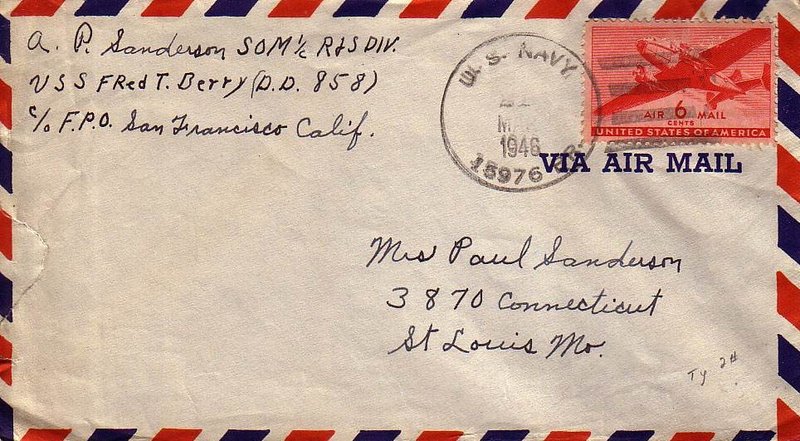 A. P. Sanderson SOM 1/c R&S DIV.
USS FRed T. Berry (D.D. 858)
c/o F.P.O. San Francisco Calif.
U.S. NAVY
1946
15976 BR.
AIR 6 MAIL
CENTS
UNITED STATES OF AMERICA
VIA AIR MAIL
Mrs Paul Sanderson
3870 Connecticut
St Louis Mo.